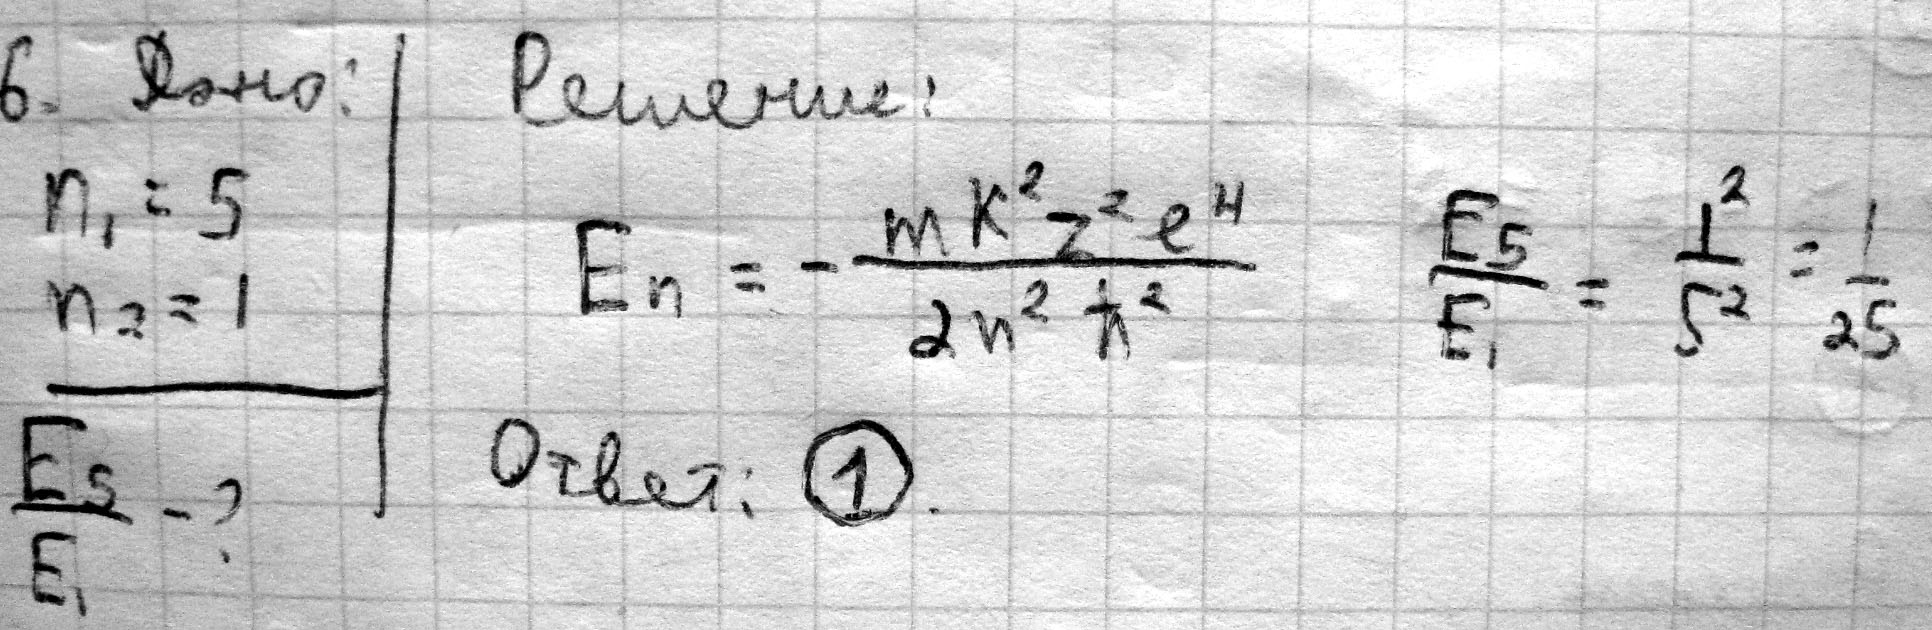 6. Дано:
n₁ = 5
n₂ = 1
E₅/E₁ - ?
Решение:
Eₙ = - mk²z²e⁴ / 2n²ħ²
E₅/E₁ = 1²/5² = 1/25
Ответ: 1.